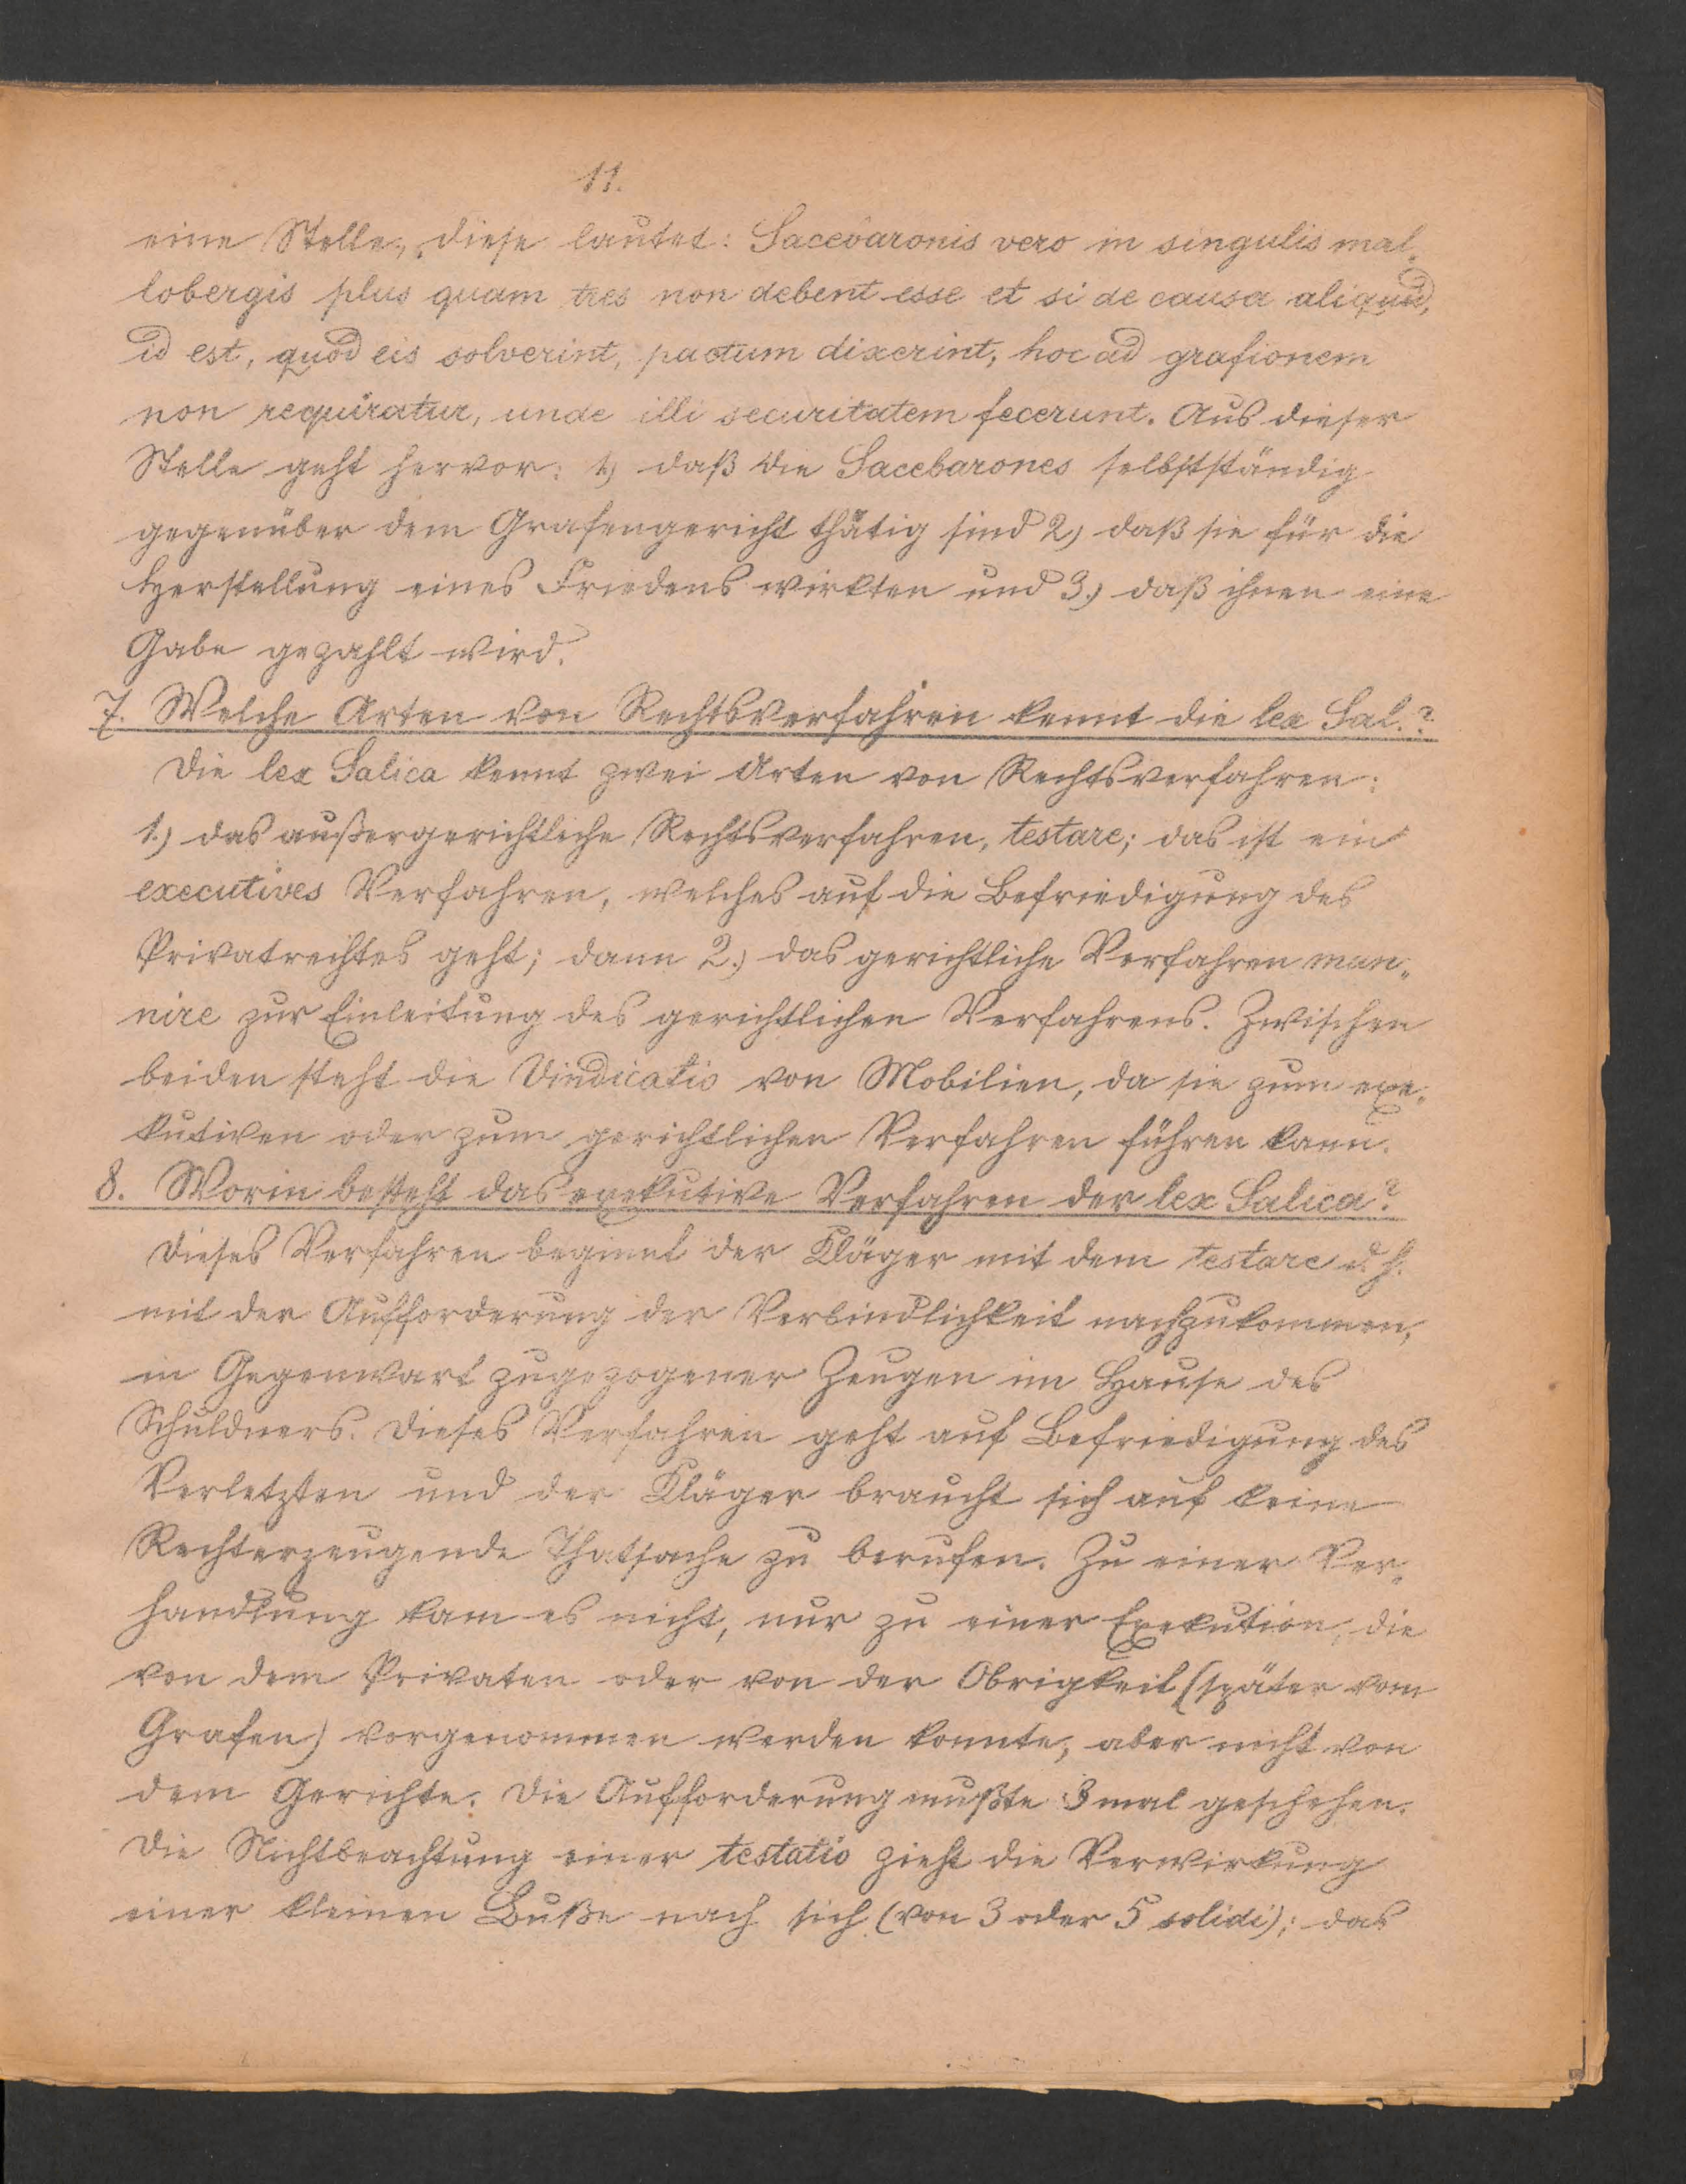 11.
eine Stelle, diese lautet: Sacebaronis vero in singulis mal„
lobergis plus quam tres non debent esse et si de causa aliquid,
id est, quod eis solverint, pactum dixerint, hoc ad grafionem
non requiratur, unde illi securitatem fecerunt. Aus dieser
Stelle geht hervor: 1.) daß die Sacebarones selbstständig
gegenüber dem Grafengericht thätig sind 2.) daß sie für die
Herstellung eines Friedens wirkten und 3.) daß ihnen eine
Gabe gezahlt wird.
7. Welche Arten von Rechtsverfahren kennt die lex Sal.?
Die lex Salica kennt zwei Arten von Rechtsverfahren:
1.) das außergerichtliche Rechtsverfahren, testare; das ist ein
executives Verfahren, welches auf die Befriedigung des
Privatrechtes geht; dann 2.) das gerichtliche Verfahren man„
nire zur Einleitung des gerichtlichen Verfahrens. Zwischen
beiden steht die Vindicatio von Mobilien, da sie zum exe„
kutiven oder zum gerichtlichen Verfahren führen kann.
8. Worin besteht das exekutive Verfahren der lex Salica?
Dieses Verfahren beginnt der Kläger mit dem testare d. h.
mit der Aufforderung der Verbindlichkeit nachzukommen,
in Gegenwart zugezogener Zeugen im Hause des
Schuldners. Dieses Verfahren geht auf Befriedigung des
Verletzten und der Kläger braucht sich auf keine
Rechterzeugende Thatsache zu berufen. Zu einer Ver„
handlung kam es nicht, nur zu einer Exekution, die
von dem Privaten oder von der Obrigkeit (später vom
Grafen) vorgenommen werden konnte, aber nicht von
dem Gerichte. Die Aufforderung mußte 3 mal geschehen.
Die Nichtbeachtung einer testatio zieht die Verwirkung
einer kleinen Buße nach sich (von 3 oder 5 solidi); das